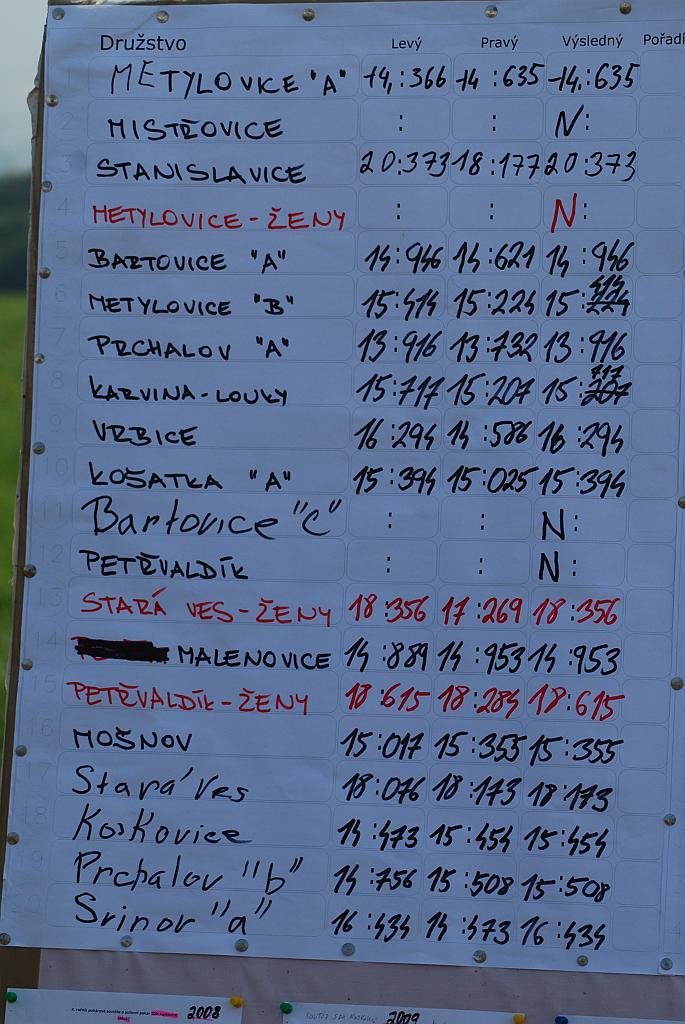 Družstvo Levý Pravý Výsledný Pořadí
1 METYLOVICE "A" 14:366 14:635 14:635
2 MISTŘOVICE : : N:
3 STANISLAVICE 20:373 18:177 20:373
4 METYLOVICE-ŽENY : : N:
5 BARTOVICE "A" 14:946 14:621 14:946
6 METYLOVICE "B" 15:414 15:224 15:414
7 PRCHALOV "A" 13:916 13:732 13:916
8 KARVINA-LOUKY 15:717 15:207 15:717
9 VRBICE 16:294 14:586 16:294
10 KOŠATKA "A" 15:394 15:025 15:394
11 Bartovice "C" : : N:
12 PETŘVALDÍK : : N:
13 STARÁ VES-ŽENY 18:356 17:269 18:356
14 MALENOVICE 14:889 14:953 14:953
15 PETŘVALDÍK-ŽENY 18:615 18:284 18:615
16 MOŠNOV 15:017 15:355 15:355
17 Stará Ves 18:076 18:173 18:173
18 Koskovice 14:473 15:454 15:454
19 Prchalov "b" 14:756 15:508 15:508
20 Srinov "a" 16:434 14:473 16:434
2008
2009